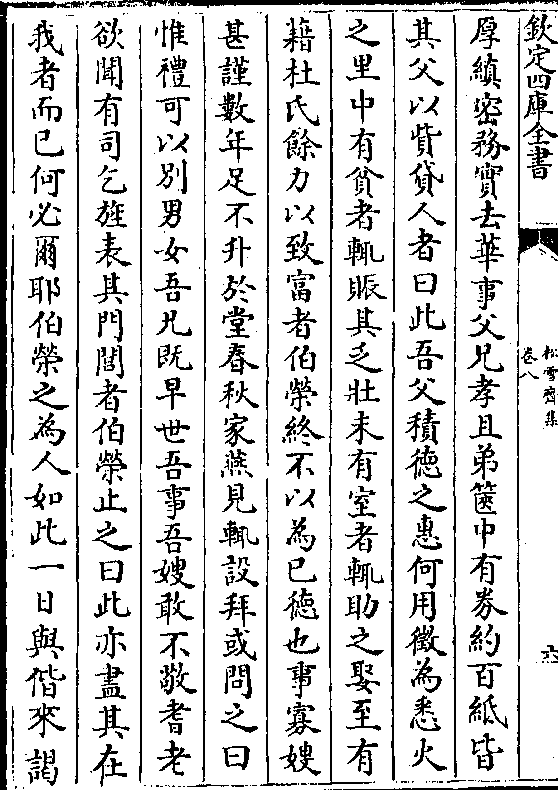 欽定四庫全書
松雪齋集
卷八
六
厚縝密務實去華事父兄孝且弟篋中有券約百紙皆
其父以貲貸人者曰此吾父積德之惠何用徵為悉火
之里中有貧者輒賑其乏壯未有室者輒助之娶至有
藉杜氏餘力以致富者伯榮終不以為已德也事寡嫂
甚謹數年足不升於堂春秋家燕見輒設拜或問之曰
惟禮可以別男女吾兄既早世吾事吾嫂敢不敬耆老
欲聞有司乞旌表其門閭者伯榮止之曰此亦盡其在
我者而已何必爾耶伯榮之為人如此一日與偕來謁